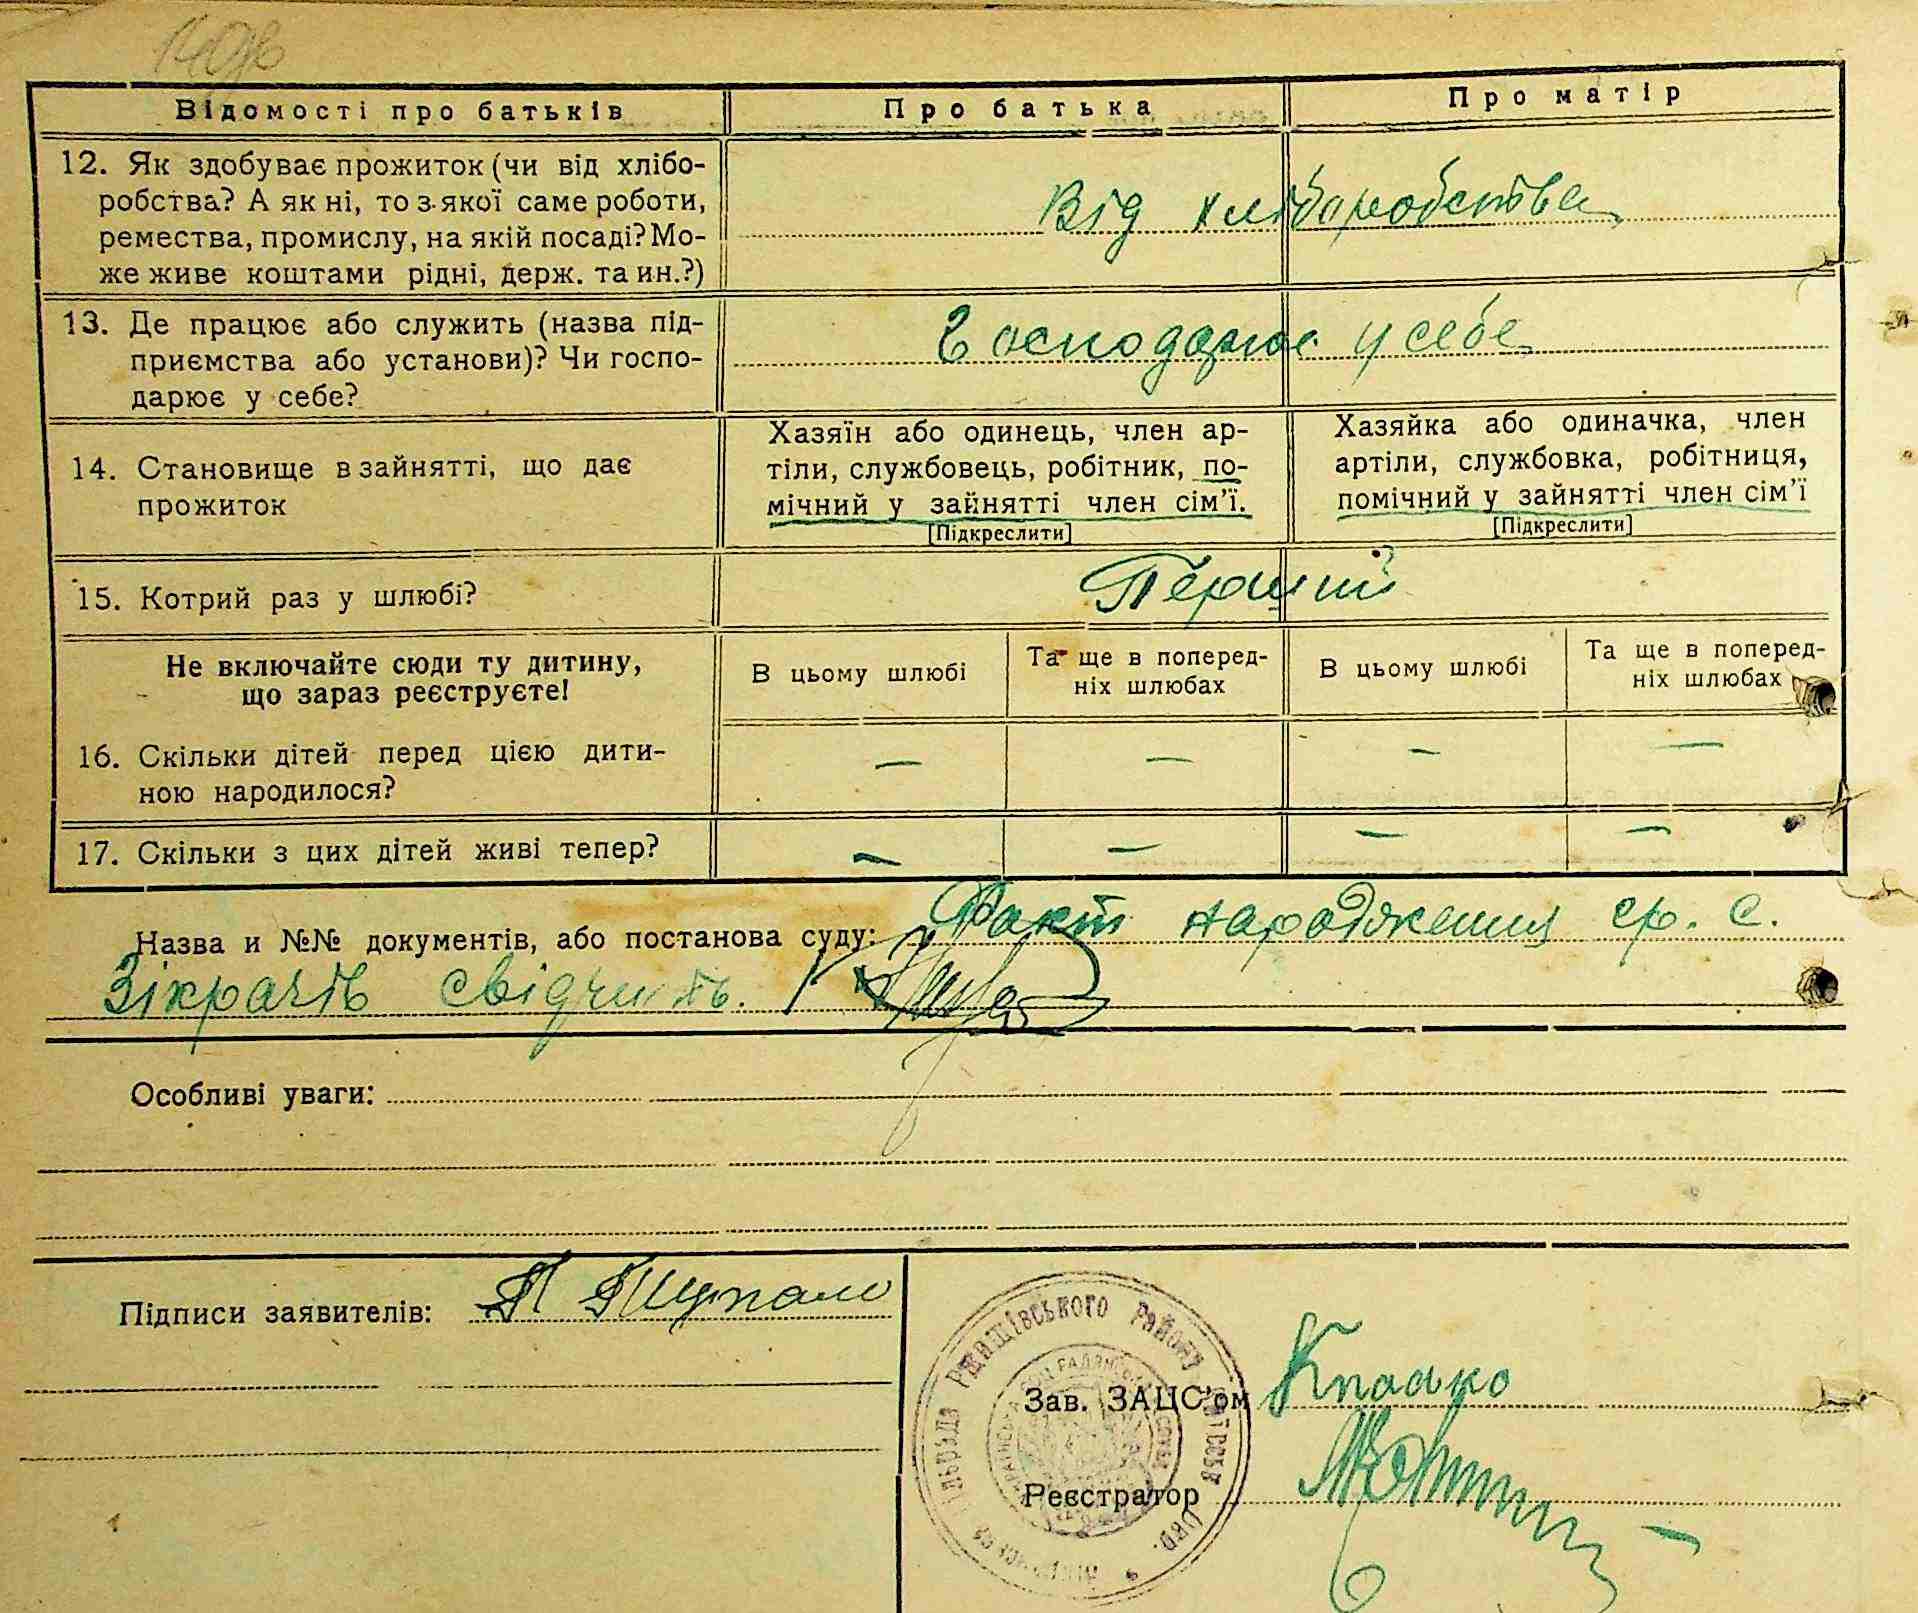 Відомості про батьків
Про батька
Про матір
12. Як здобуває прожиток (чи від хлібо-
робства? А як ні, то з якої саме роботи,
ремества, промислу, на якій посаді? Мо-
же живе коштами рідні, держ. та ин.?)
Від хліборобства
13. Де працює або служить (назва під-
приємства або установи)? Чи госпо-
дарює у себе?
Господарює у себе
14. Становище в зайнятті, що дає
прожиток
Хазяїн або одинець, член ар-
тіли, службовець, робітник, по-
мічний у зайнятті член сім'ї.
[Підкреслити]
Хазяйка або одиначка, член
артіли, службовка, робітниця,
помічний у зайнятті член сім'ї
[Підкреслити]
15. Котрий раз у шлюбі?
Перший
Не включайте сюди ту дитину,
що зараз реєструєте!
В цьому шлюбі
Та ще в поперед-
ніх шлюбах
В цьому шлюбі
Та ще в поперед-
ніх шлюбах
16. Скільки дітей перед цією дити-
ною народилося?
— — — —
17. Скільки з цих дітей живі тепер?
— — — —
Назва и №№ документів, або постанова суду: Факт народження гр. с.
Зікрачів свідчить.
Особливі уваги:
Підписи заявителів:
Ржищівського району
Зав. ЗАЦС'ом
Реєстратор